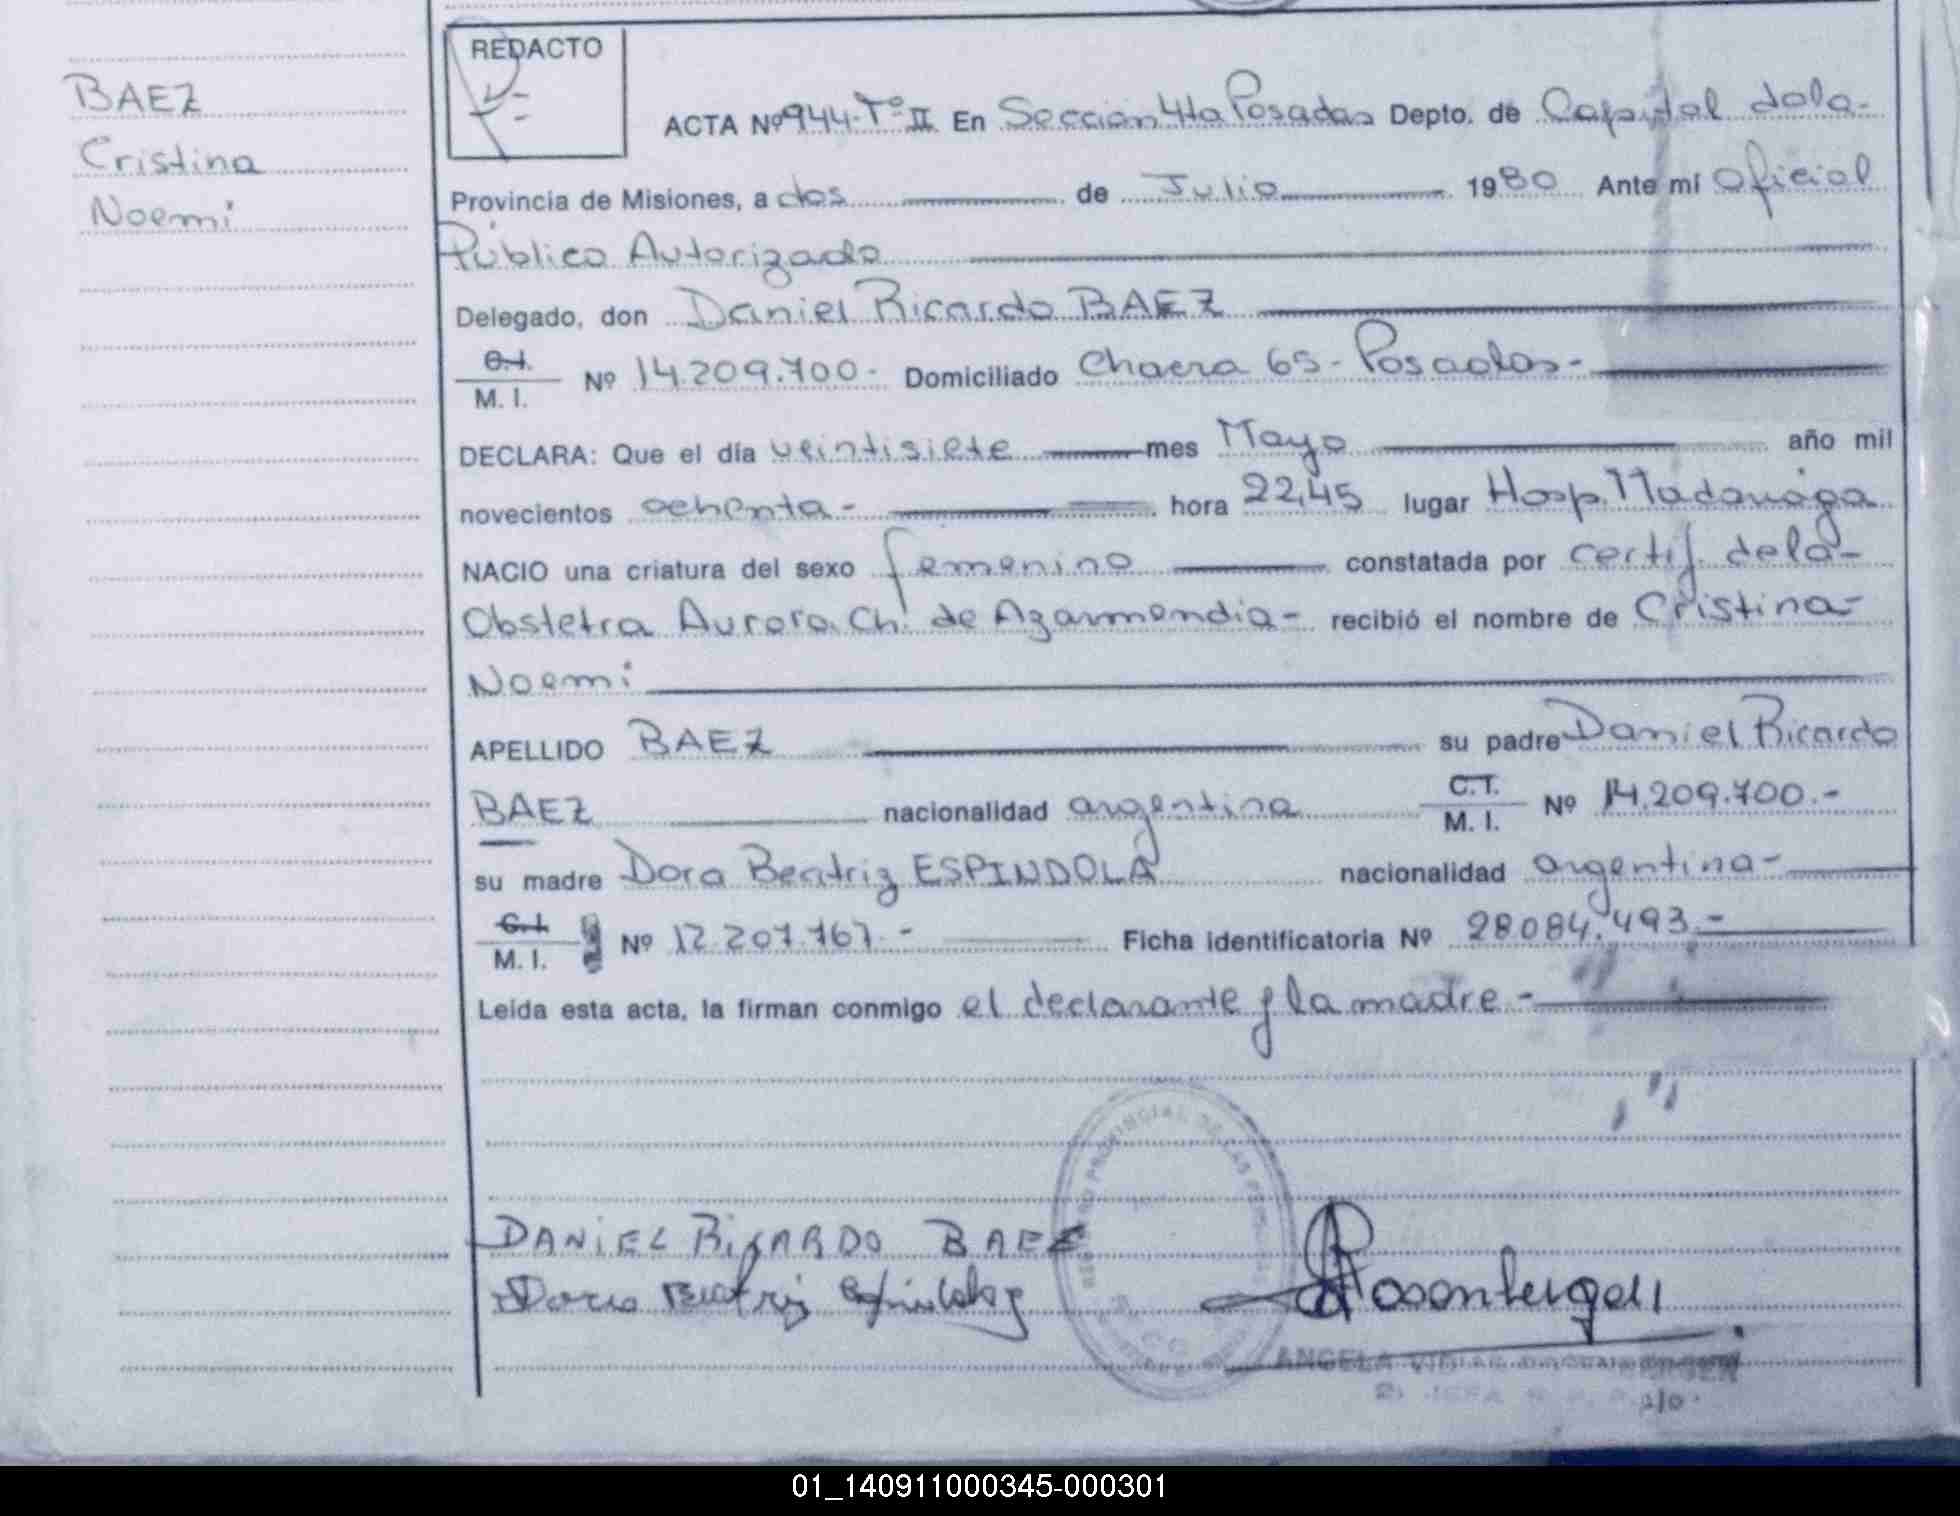 BAEZ
Cristina
Noemi
REDACTO
ACTA Nº 944-Tº II En Sección 4ta Posadas Depto. de Capital de la-
Provincia de Misiones, a dos de Julio 1980 Ante mí Oficial
Público Autorizado
Delegado, don Daniel Ricardo BAEZ
C.I.
M. I. Nº 14.209.700- Domiciliado Chacra 65- Posadas-
DECLARA: Que el día veintisiete mes Mayo año mil
novecientos ochenta- hora 22,45 lugar Hosp. Madariaga
NACIO una criatura del sexo femenino constatada por certif. de la-
Obstetra Aurora Ch. de Azarmendia- recibió el nombre de Cristina-
Noemi
APELLIDO BAEZ su padre Daniel Ricardo
BAEZ nacionalidad argentina C.I. M. I. Nº 14.209.700.-
su madre Dora Beatriz ESPINDOLA nacionalidad argentina-
C.I.
M. I. Nº 12.207.767.- Ficha identificatoria Nº 28.084.493.-
Leída esta acta, la firman conmigo el declarante y la madre.-
REGISTRO PROVINCIAL DE LAS PERSONAS
DANIEL RICARDO BAEZ
Dora Beatriz
ANGELA
JEFA
01_140911000345-000301